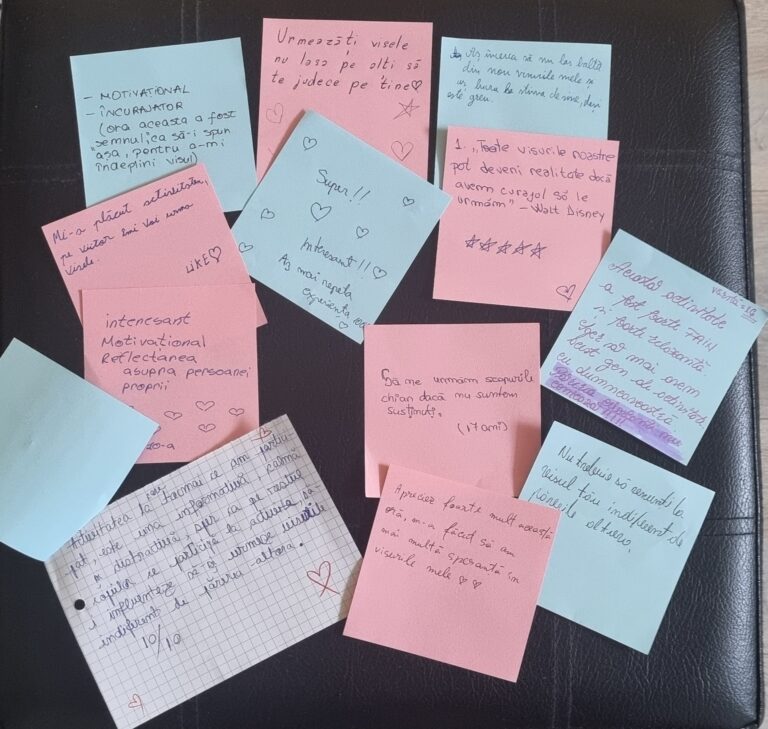 - MOTIVAȚIONAL
- ÎNCURAJATOR
(ora aceasta a fost
semnul ca să-i spun
așa, pentru a-mi
îndeplini visul)
Urmează-ți visele
nu lasa pe alti să
te judece pe tine
Aș încerca să nu las baltă
din nou visurile mele și
de mine, deși
este greu.
Mi-a plăcut activitatea,
pe viitor îmi voi urma
visele.
LIKE
Super!!
Interesant!!
Aș mai repeta
experiența
1. „Toate visurile noastre
pot deveni realitate dacă
avem curajul să le
urmăm" - Walt Disney
interesant
Motivațional
Reflectarea
asupra persoanei
proprii
Să ne urmăm scopurile
chiar dacă nu suntem
susținuți.
(17 ani)
Această activitate
a fost foarte FAIN
și foarte relaxantă.
Sper să mai avem
gen de activități
cu dumneavoastră.
Nu trebuie să renunți la
visul tău indiferent de
părerile altora.
Apreciez foarte mult această
oră, m-a făcut să am
mai multă speranță în
visurile mele
Activitatea la care tocmai ce am partici-
pat, este una informativă, calmă
și distractivă, per ca și restul
copiilor să participe la aceasta, să
-i influențeze să-și urmeze visurile
indiferent de părerea altora.
10/10